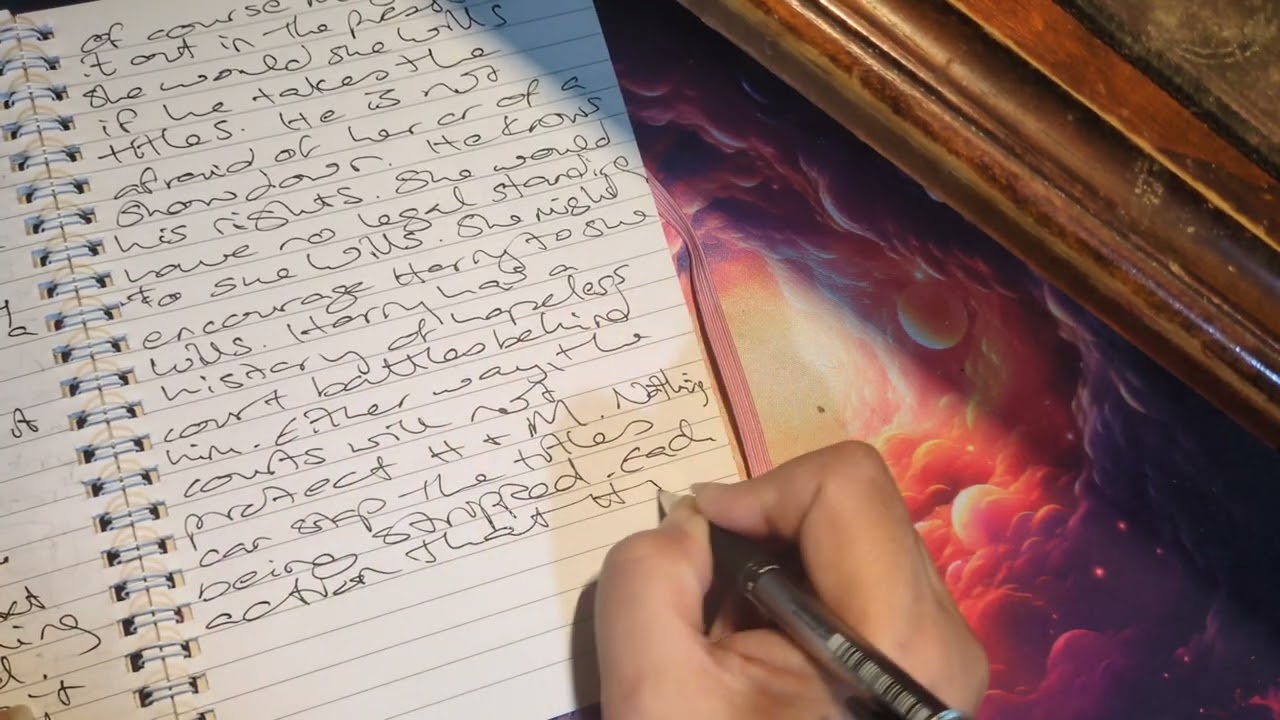 of course
it out in the press
she would she wills
if he takes the
titles. He is not
afraid of her or of a
showdown. He knows
his rights. She would
have no legal standing
to she wills. She might
encourage Harry to she
wills. Harry has a
history of hopeless
court battles behind
him. Either way, the
courts will not
protect H + M. Nothing
can stop the titles
being stripped. Each
action that
a
it
ing
it